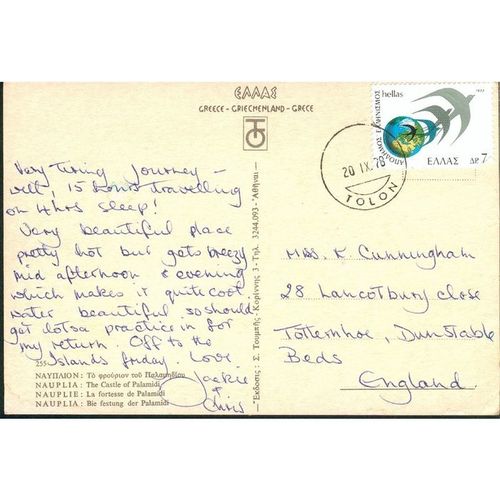 ΕΛΛΑΣ
GREECE - GRIECHENLAND - GRECE
Very tiring journey -
well, 15 hours travelling
on 4 hrs sleep!
Very beautiful place
pretty hot but gets breezy
mid afternoon & evening
which makes it quite cool.
Water beautiful so should
get lotsa practice in for
my return. Off to the
Islands friday. Love
Jackie
+
Chris
255
ΝΑΥΠΛΙΟΝ: Τὸ φρούριον τοῦ Παλαμηδίου
NAUPLIA: The Castle of Palamidi
NAUPLIE: La fortesse de Palamidi
NAUPLIA: Bie festung der Palamidi
Ἔκδοσις: Σ. Τουμπῆς, Κορίννης 3 - Τηλ. 3244.093 - Ἀθῆναι
hellas
1977
ΑΠΟΔΗΜΟΣ ΕΛΛΗΝΙΣΜΟΣ
ΕΛΛΑΣ ΔΡ 7
20 IX. 78
TOLON
MRS. K Cunningham
28 Lancotbury Close
Totternhoe, Dunstable
Beds
England